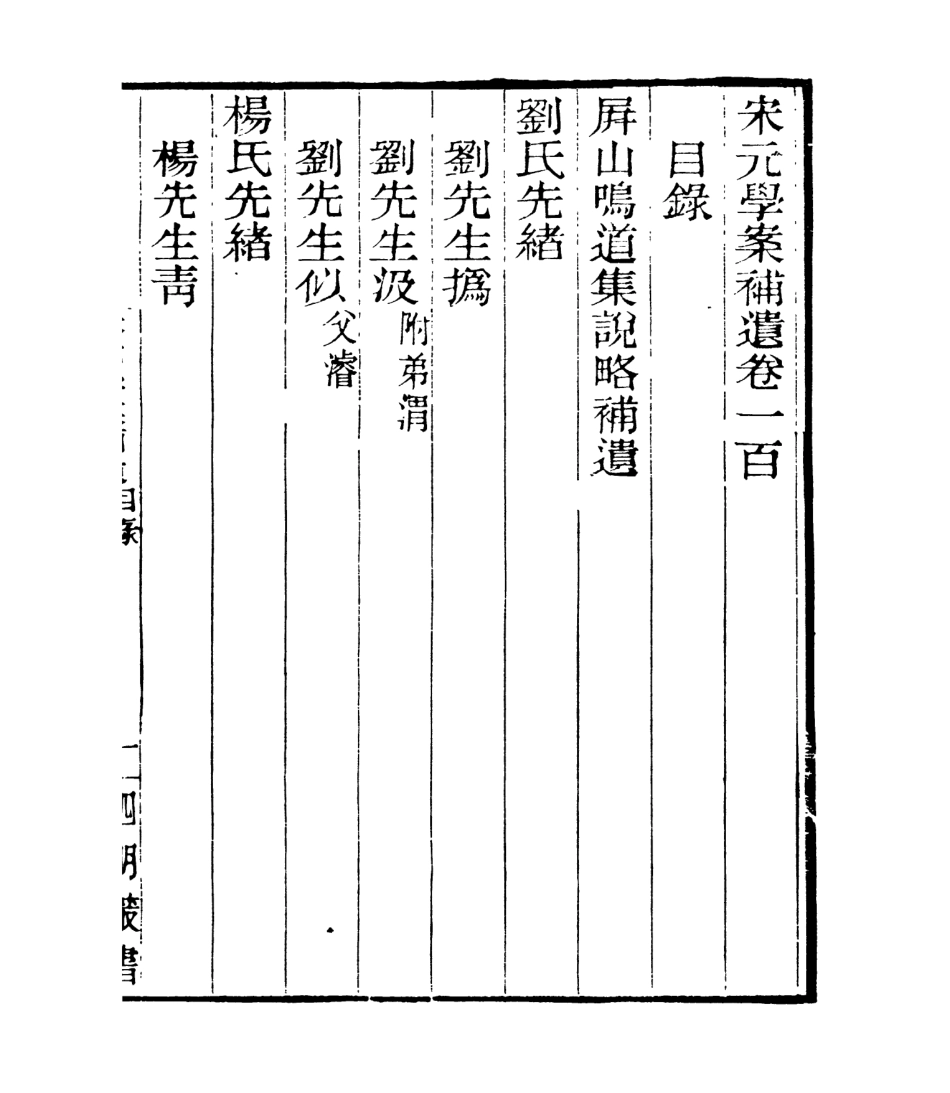 宋元學案補遺卷一百
目錄
屛山鳴道集說略補遺
劉氏先緒
劉先生撝
劉先生汲附弟渭
劉先生似父濬
楊氏先緒
楊先生靑
目錄
一 四明叢書